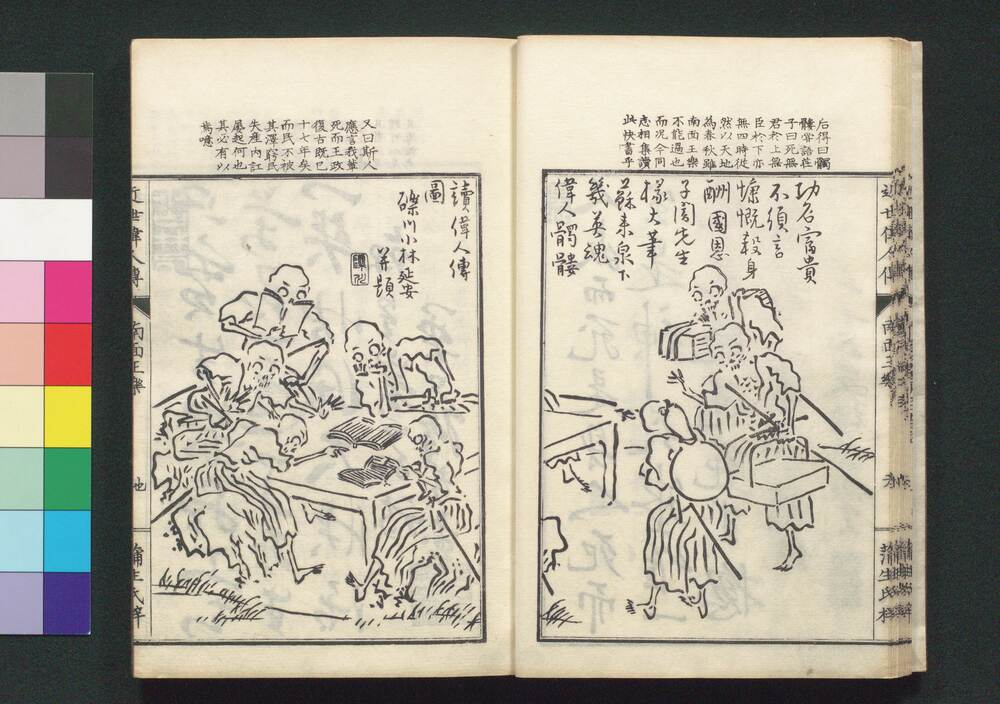 后得曰髑
髏常語在
子曰死無
君於上無
臣於下亦
無四時從
然以天地
為春秋雖
南面王樂
不能過也
而况今同
志相集讀
此快書乎
近世偉人傳
南面王樂
蒲生氏梓
功名富貴
不須言
慷慨殺身
酬國恩
子闇先生
椽大筆
蘇来泉下
幾英魂
偉人髑髏
又曰斯人
應言我輩
死而王政
復古既已
十七年矣
而民不被
其澤窮民
失産内訌
屡起何也
其必有以
焉噫
讀偉人傳
圖
礫川小林延安
并題
近世偉人傳
南面王樂
地
蒲生氏梓